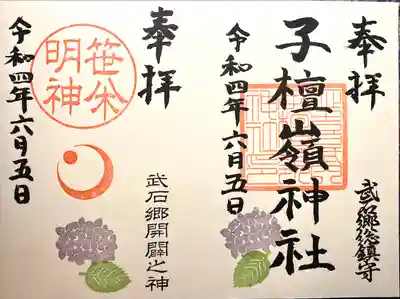 奉拝
子檀嶺神社
令和四年六月五日
武石郷総鎮守
奉拝
笹焼明神
武石郷開闢之神
令和四年六月五日